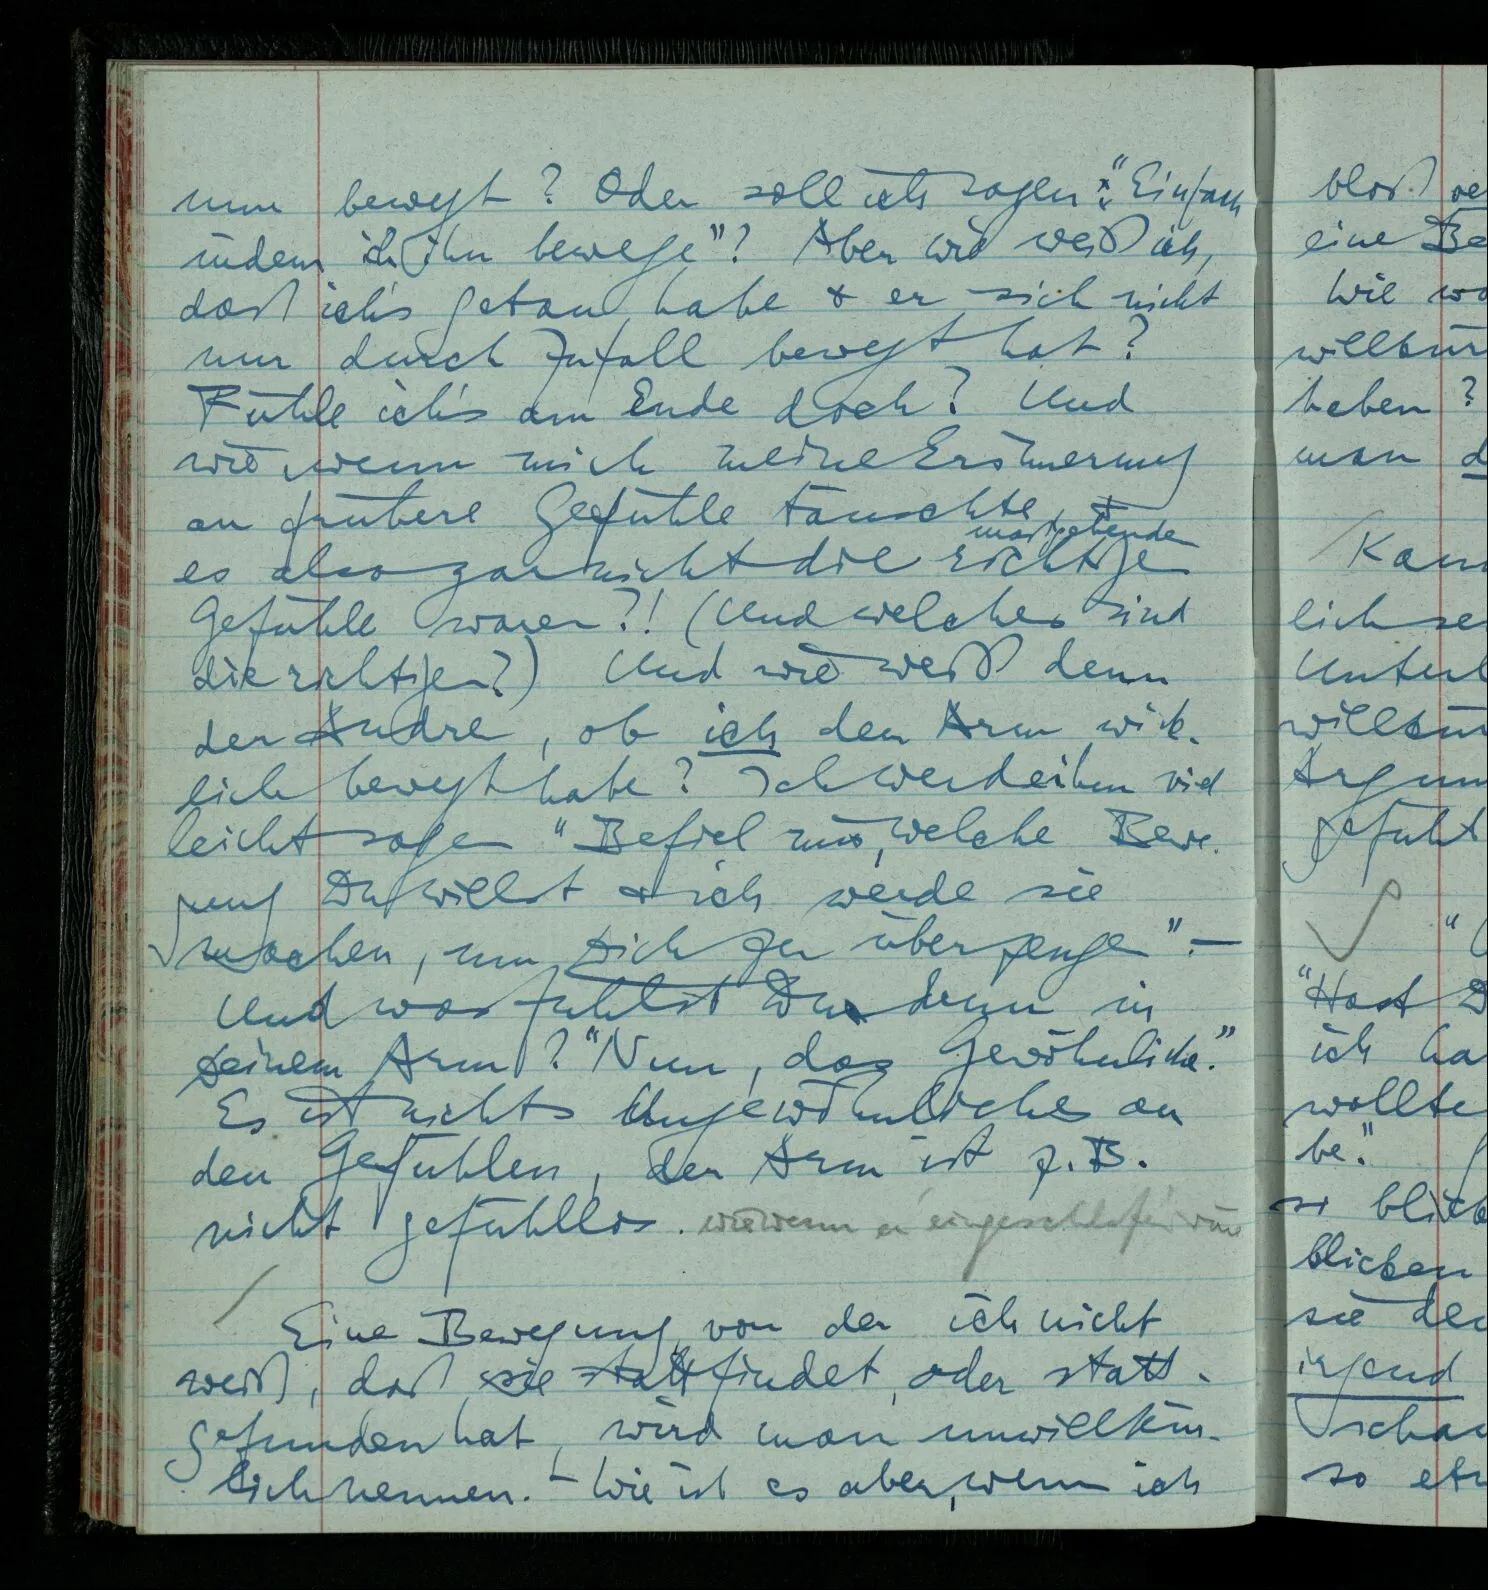 nun bewegt? Oder soll ich sagen: "Einfach
indem ich ihn bewege"? Aber wie weiß ich,
daß ich's getan habe & er sich nicht
nur durch Zufall bewegt hat?
Fühle ich's am Ende doch? Und
wie wenn mich meine Erinnerung
an frühere Gefühle täuschte, &
maßgebende
es also gar nicht die richtigen
Gefühle waren?! (Und welches sind
die richtigen?) Und wie weiß denn
der Andre, ob ich den Arm wirk-
lich bewegt habe? Ich werde ihm viel
leicht sagen "Befiel mir, welche Bewe-
gung Du willst & ich werde sie
machen, um Dich zu überzeugen". –
Und was fühlst Du denn in
Deinem Arm? "Nun, das Gewöhnliche."
Es ist nichts Ungewöhnliches an
den Gefühlen, der Arm ist z.B.
nicht gefühllos. wie wenn er eingeschlafen wäre
Eine Bewegung von der ich nicht
weiß, daß sie stattfindet, oder statt-
gefunden hat, wird man unwillkür-
lich nennen. – Wie ist es aber, wenn ich
bloß
eine Be
Wie
willkür
heben?
man
Kann
lich
Unter
willkür
Argum
gefühl
"Hast D
ich ha
wollte
be."
so blick
blicken
sie
irgend
scha
so